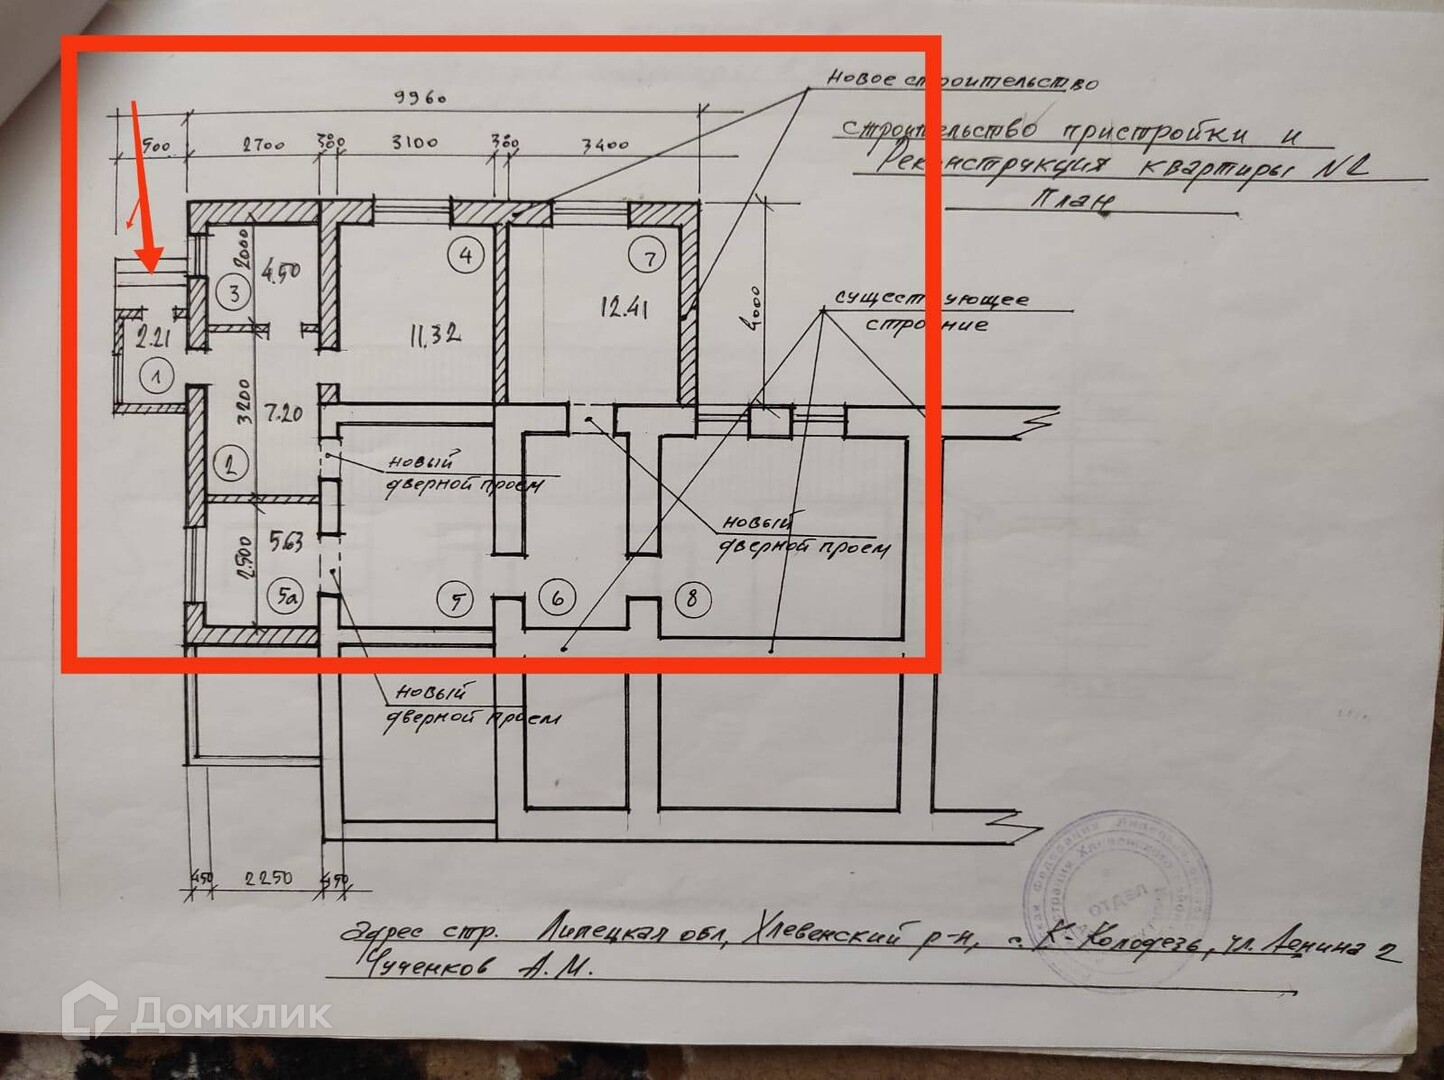 новое строительство
9960
строительство пристройки и
Реконструкция квартиры №2
План
900 2700 380 3100 380 3400
4
7
2000
4.50
3
12.41
4000
существующее
строение
2.21
11.32
1
3200
7.20
2
новый
дверной проем
новый
дверной проем
2.500
5.63
5а
5
6
8
новый
дверной проем
450 2250 450
ОТДЕЛ
Адрес стр. Липецкая обл, Хлевенский р-н, с. К-Колодезь, ул. Ленина 2
Чученков А.М.
Домклик